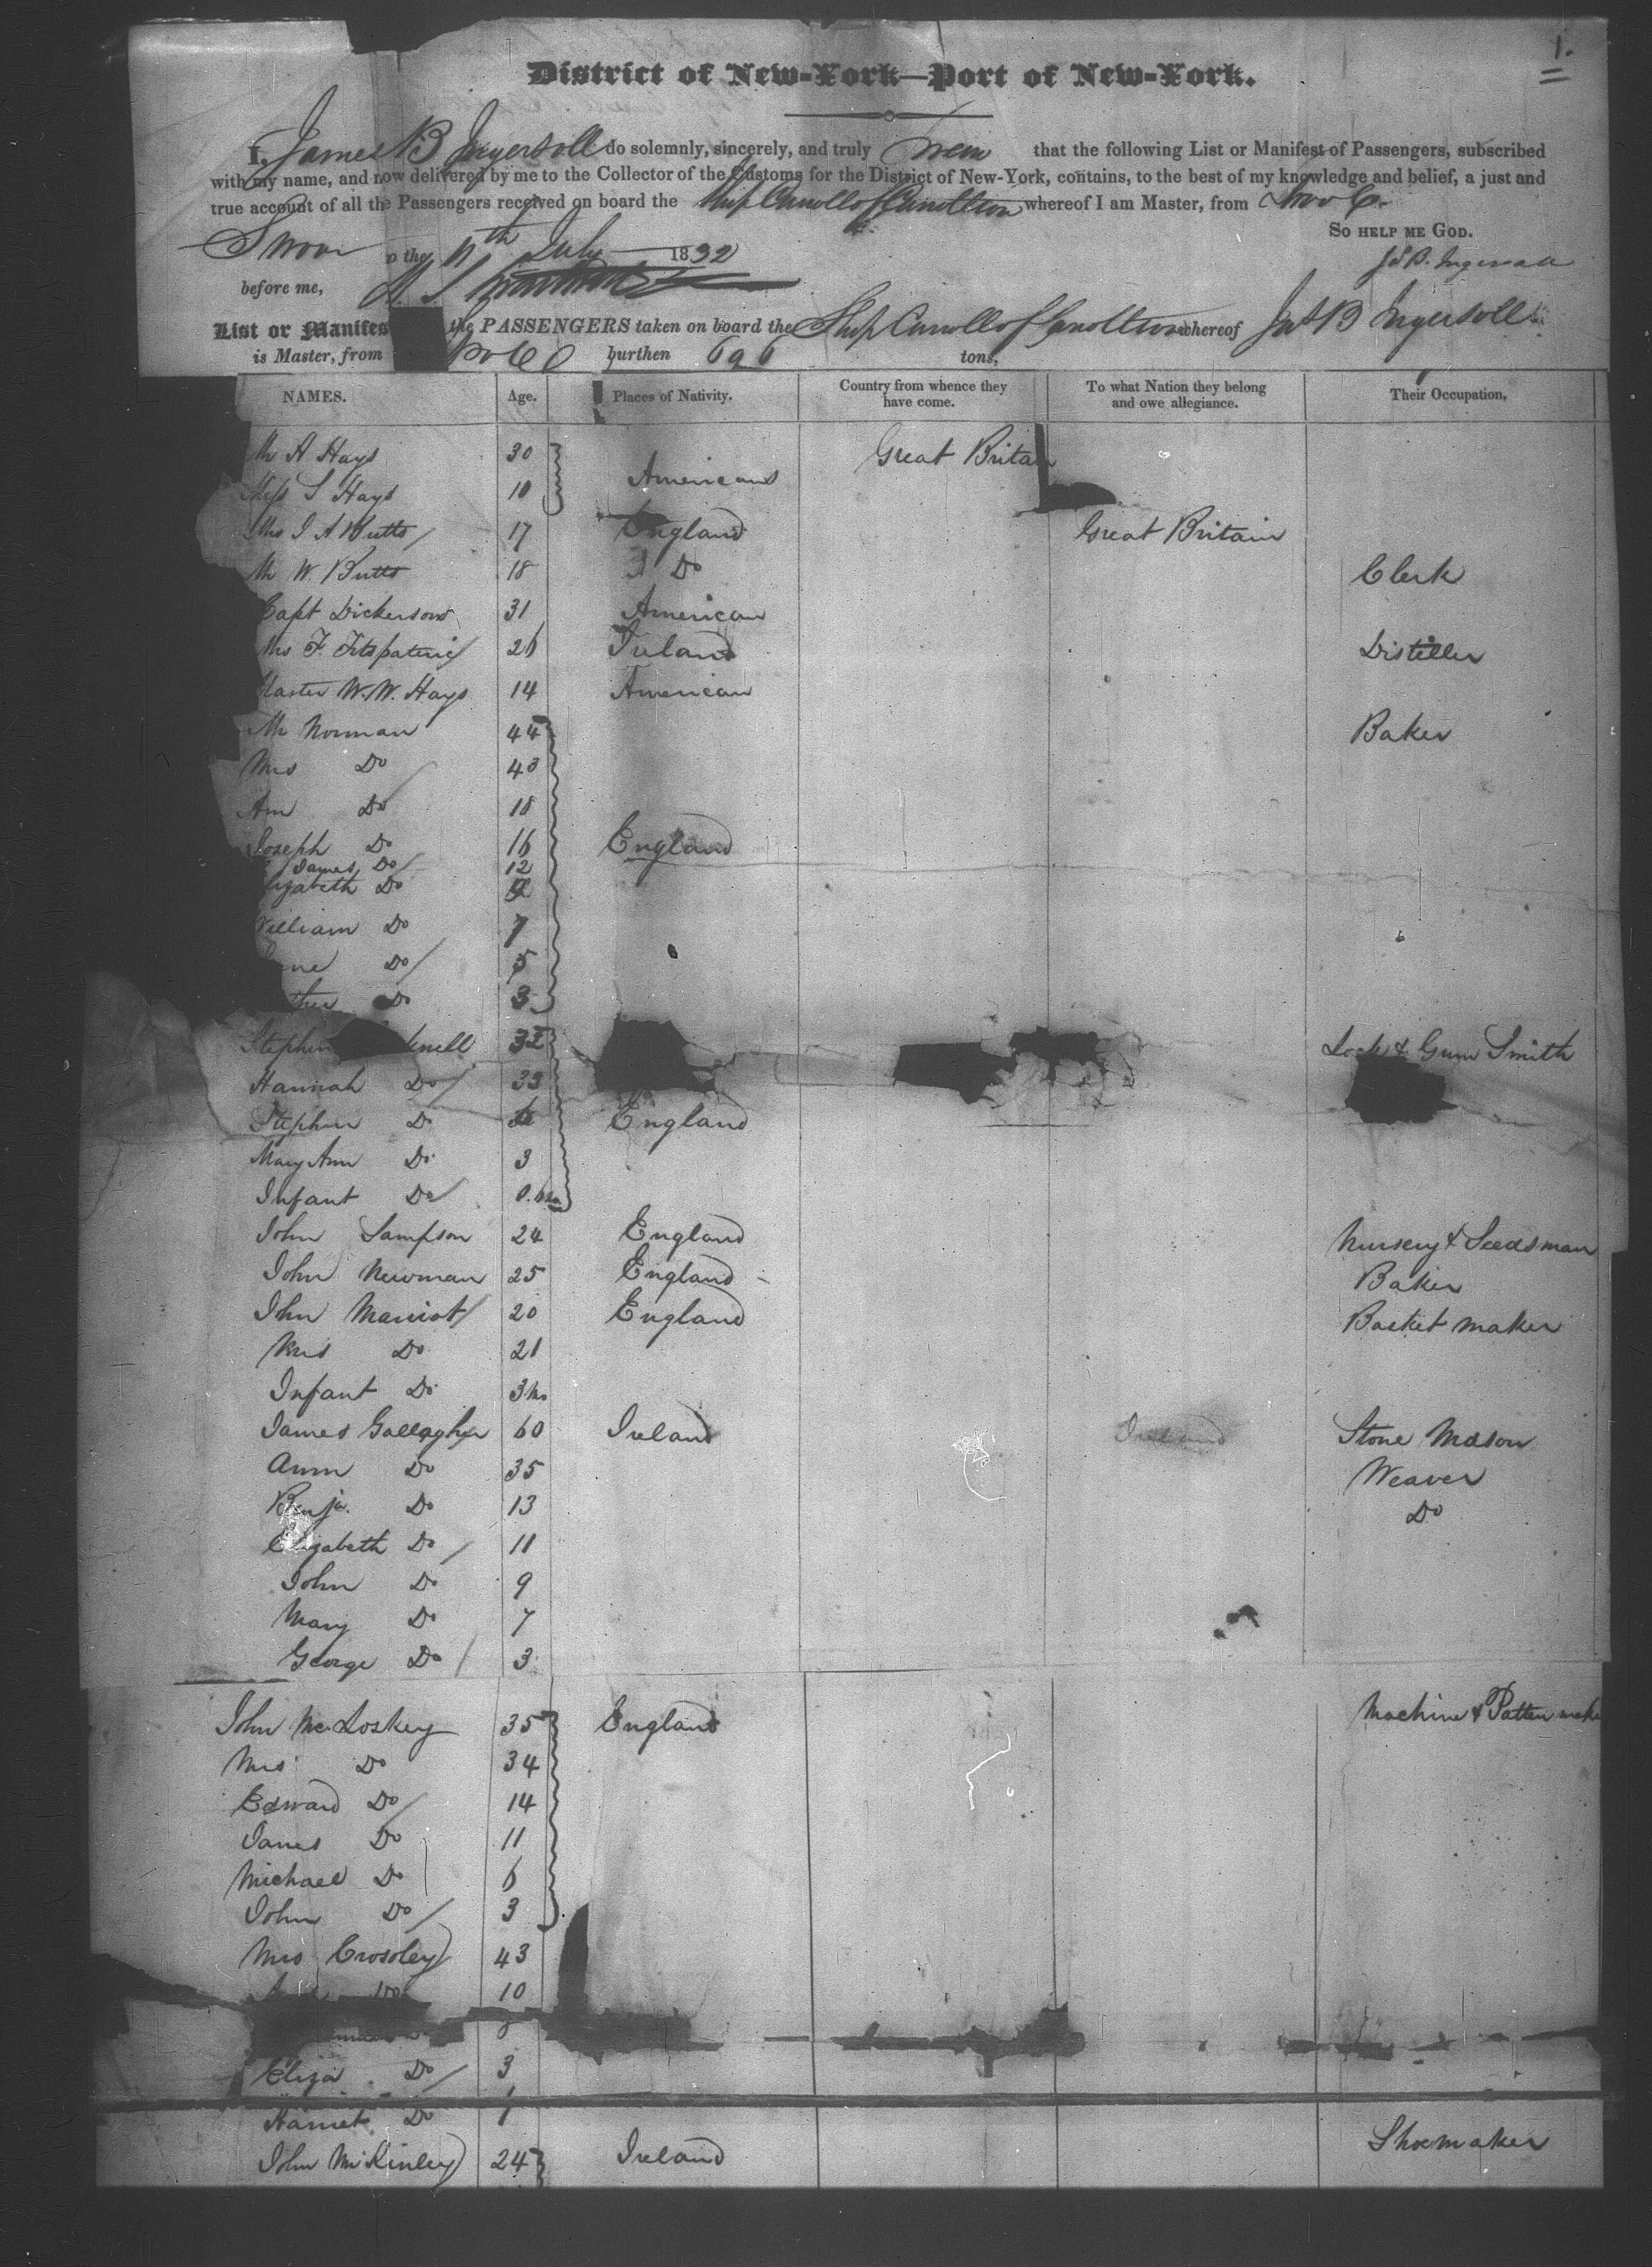 1.
District of New-York—Port of New-York.
I, James B Ingersoll do solemnly, sincerely, and truly that the following List or Manifest of Passengers, subscribed
with my name, and now delivered by me to the Collector of the Customs for the District of New-York, contains, to the best of my knowledge and belief, a just and
true account of all the Passengers received on board the Ship Carroll of Carrollton whereof I am Master, from
So help me God.
Sworn the 11th July 1832
Jas B. Ingersoll
before me,
List or Manifes the PASSENGERS taken on board the Ship Carroll of Carrollton whereof Jas B Ingersoll
is Master, from burthen 696 tons,
NAMES. Age. Places of Nativity. Country from whence they have come. To what Nation they belong and owe allegiance. Their Occupation,
Mr A Hays 30 Great Britain
Americans
Miss S Hays 10
Mrs J A Butts 17 England Great Britain
Mr W. Butts 18 Do Clerk
Capt Dickerson 31 American
Mrs F. Fitspatric 26 Ireland Distiller
Master W. W. Hays 14 American
Mr Norman 44 Baker
Mrs Do 43
Ann Do 18
Joseph Do 16 England
James Do 12
Elizabeth Do 9
William Do 7
Do 5
Do 3
Stephen nell 32 Lock & Gun Smith
Hannah Do 33
Stephen Do England
Mary Ann Do 3
Infant Do
John Sampson 24 England Nursery & Seedsman
John Newman 25 England Baker
John Marriot 20 England Basket maker
Mrs Do 21
Infant Do 3 Mo
James Gallagher 60 Ireland Ireland Stone Mason
Ann Do 35 Weaver
Benja. Do 13 Do
Elizabeth Do 11
John Do 9
Mary Do 7
George Do 3
John McLoskey 35 England Machine & Pattern make
Mrs Do 34
Edward Do 14
James Do 11
Michael Do 6
John Do 3
Mrs Crossley 43
Do 10
8
Eliza Do 3
Harriet Do 1
John McKinley 24 Ireland Shoemaker